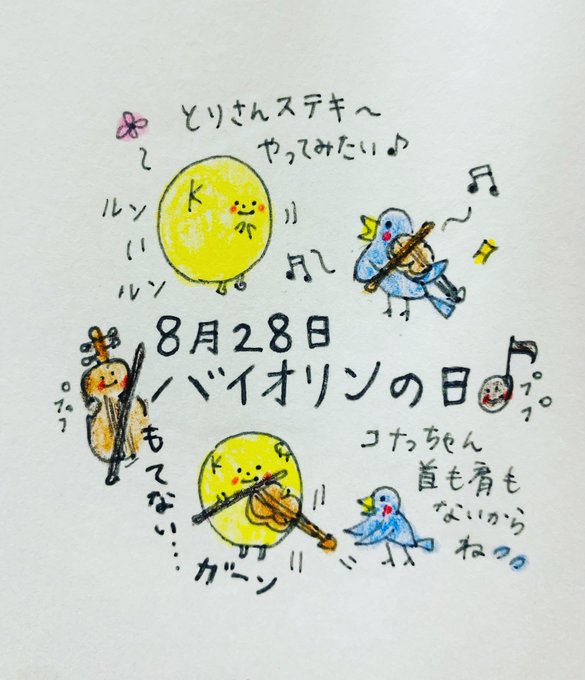 とりさんステキ〜
やってみたい♪
K
ルン
ルン
8月28日
バイオリンの日
プププ
ププ
もてない…
K
ガーン
コナっちゃん
首も肩も
ないから
ね